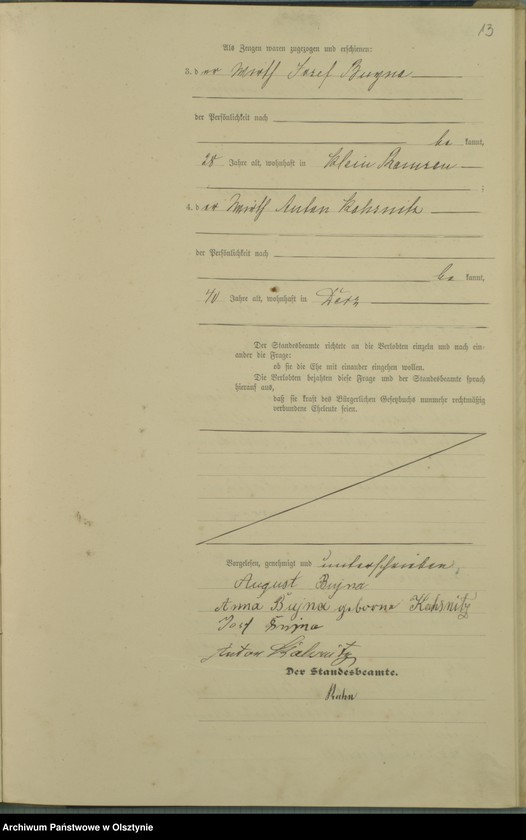 13
Als Zeugen waren zugezogen und erschienen:
3. d er Wirth Josef Buyna
der Persönlichkeit nach
be kannt,
28 Jahre alt, wohnhaft in Klein
;
4. d er Wirth Anton Kahsnitz
der Persönlichkeit nach
be kannt,
40 Jahre alt, wohnhaft in
Der Standesbeamte richtete an die Verlobten einzeln und nach ein-
ander die Frage:
ob sie die Ehe mit einander eingehen wollen.
Die Verlobten bejahten diese Frage und der Standesbeamte sprach
hierauf aus,
daß sie kraft des Bürgerlichen Gesetzbuchs nunmehr rechtmäßig
verbundene Eheleute seien.
Vorgelesen, genehmigt und unterschrieben.
August Bujna
Anna Bujna geborne Kahsnitz
Josef Bujna
Anton Kahsnitz
Der Standesbeamte.
Archiwum Państwowe w Olsztynie